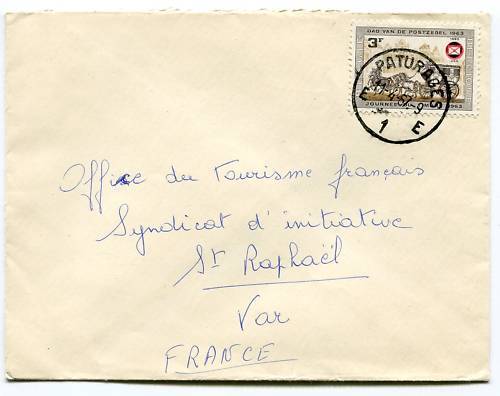 DAG VAN DE POSTZEGEL 1963
3F
PATURAGES
E 1 E
JOURNEE DU TIMBRE 1963
Office du tourisme français
Syndicat d'initiative
St Raphaël
Var
FRANCE